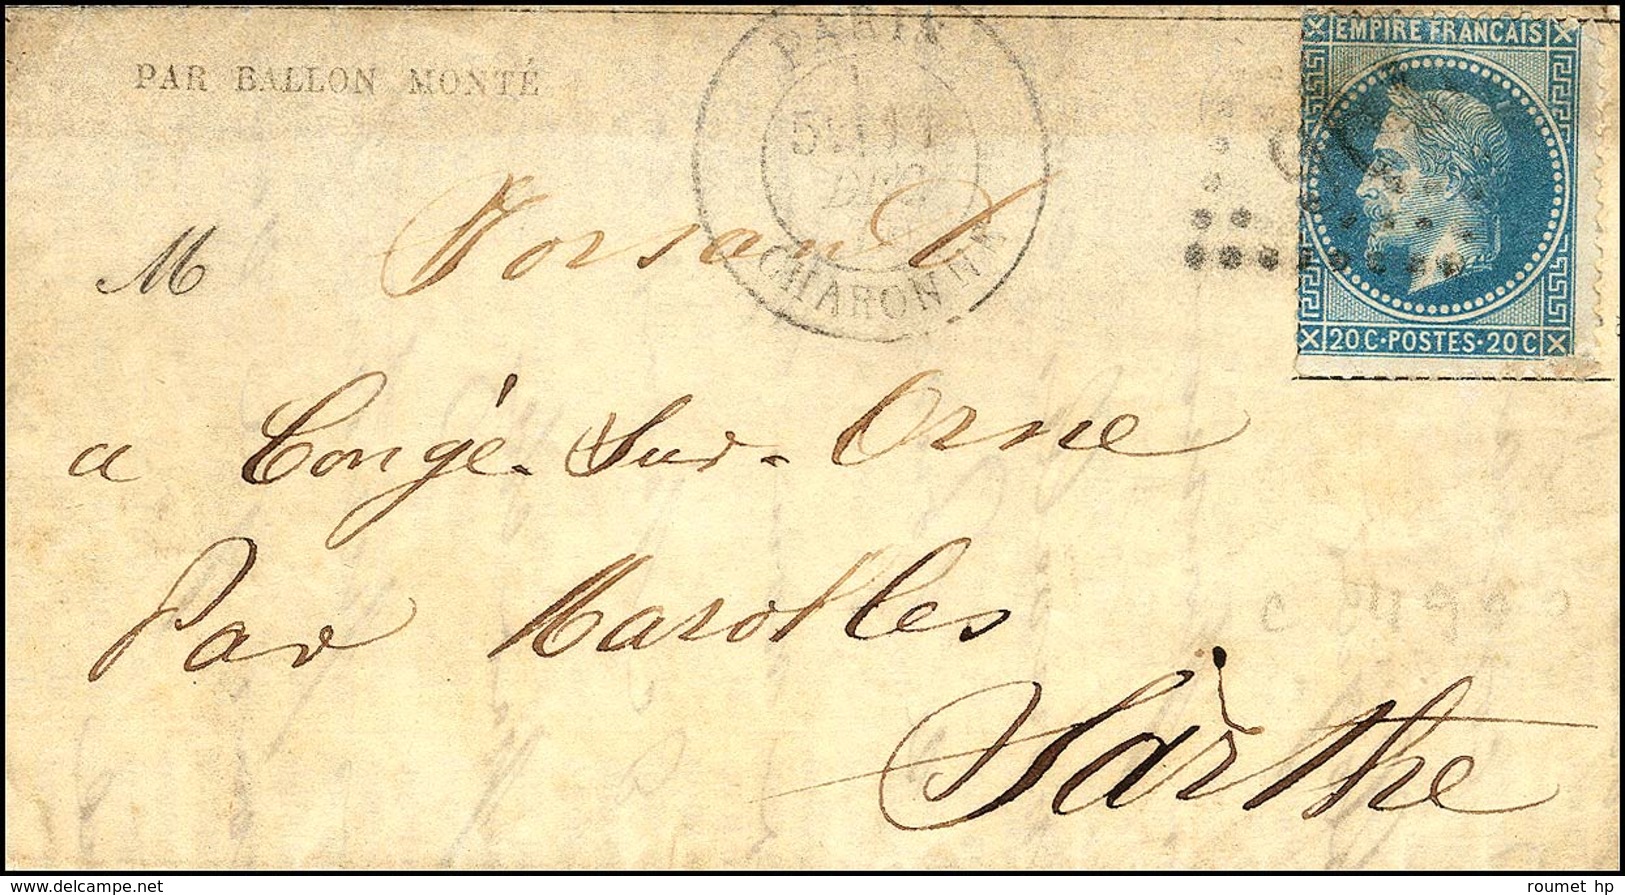 PAR BALLON MONTÉ
PARIS
5E 11
DEC
CHARONNE
EMPIRE FRANÇAIS
20 C · POSTES · 20 C
M Vorsant
a Congé-Sur-Orne
Par Marolles
Sarthe
roumet hp
www.delcampe.net